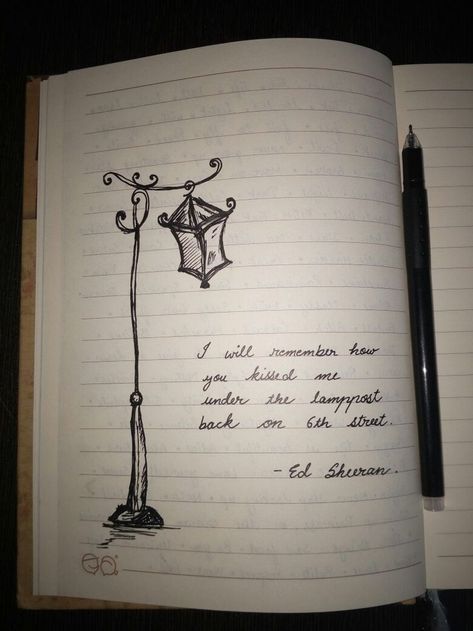 I will remember how
you kissed me
under the lamppost
back on 6th street.
- Ed Sheeran.